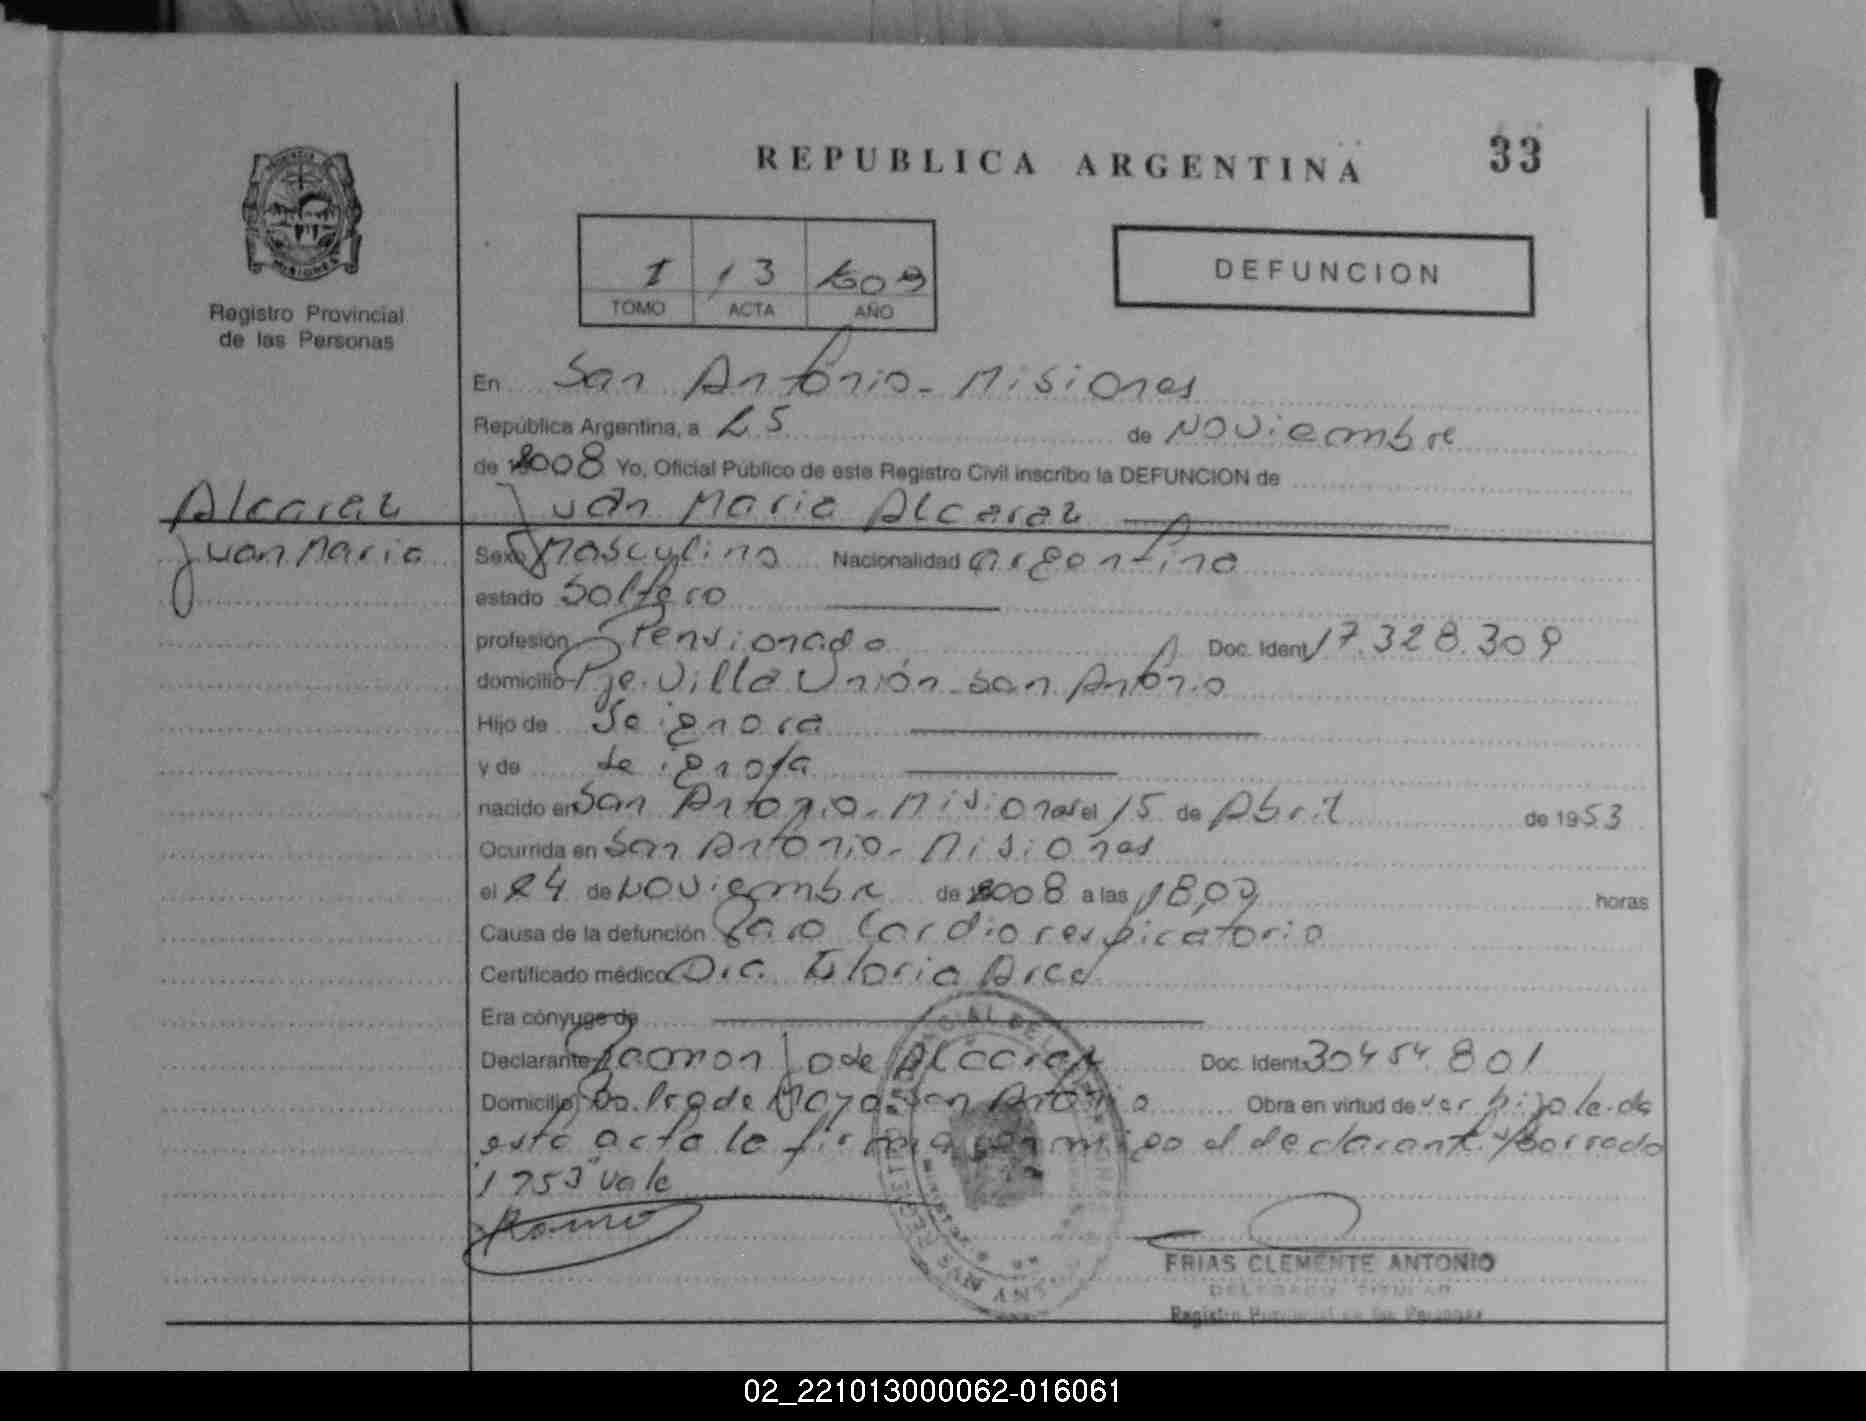 REPUBLICA ARGENTINA
33
Registro Provincial
de las Personas
I 13
TOMO ACTA AÑO
DEFUNCION
En San Antonio - Misiones
República Argentina, a 25 de Noviembre
de 2008 Yo, Oficial Público de este Registro Civil inscribo la DEFUNCION de
Alcaraz
Juan Maria
Juan Maria Alcaraz
Sexo Masculino Nacionalidad argentina
estado Soltero
profesión Pensionado Doc. Ident. 17.328.309
domicilio Pje. Villa Unión - San Antonio
Hijo de Se ignora
y de se ignora
nacido en San Antonio - Misiones el 15 de Abril de 1953
Ocurrida en San Antonio - Misiones
el 24 de Noviembre de 2008 a las horas
Causa de la defunción Paro Cardiorespiratorio
Certificado médico Dra. Gloria Arce
Era cónyuge de
Declarante Ramon Jose Alcaraz Doc. Ident. 30454.801
Domicilio San Antonio Obra en virtud de
esta acta la firma conmigo el declarante
1953" vale
FRIAS CLEMENTE ANTONIO
DELEGADO TITULAR
Registro Provincial de las Personas
02_221013000062-016061